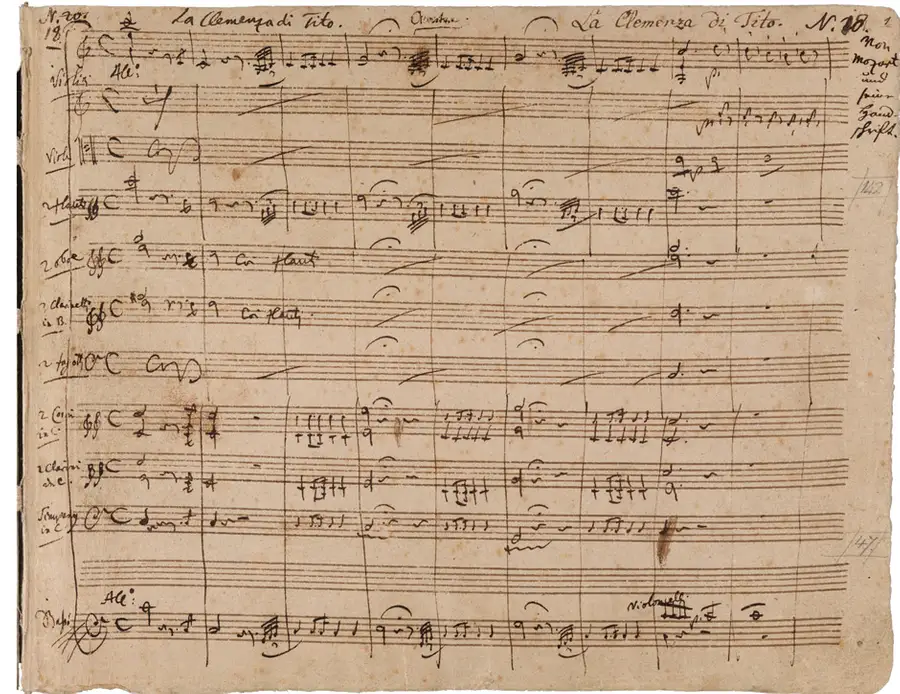 N. 20. La Clemenza di Tito. Overtura: La Clemenza di Tito. N. 18. 2
18.
Von
Mozart
und
seiner
Hand-
schrift.
All:º
Violin
Viole
2 flauti
2 oboe Coi flauti
2 Clarinetti
in B. Coi flauti
2 fagotti
2 Corni
in C.
2 Clarini
in C.
Timpany
in C.
All:º
Violoncelli
Bassi
142
147